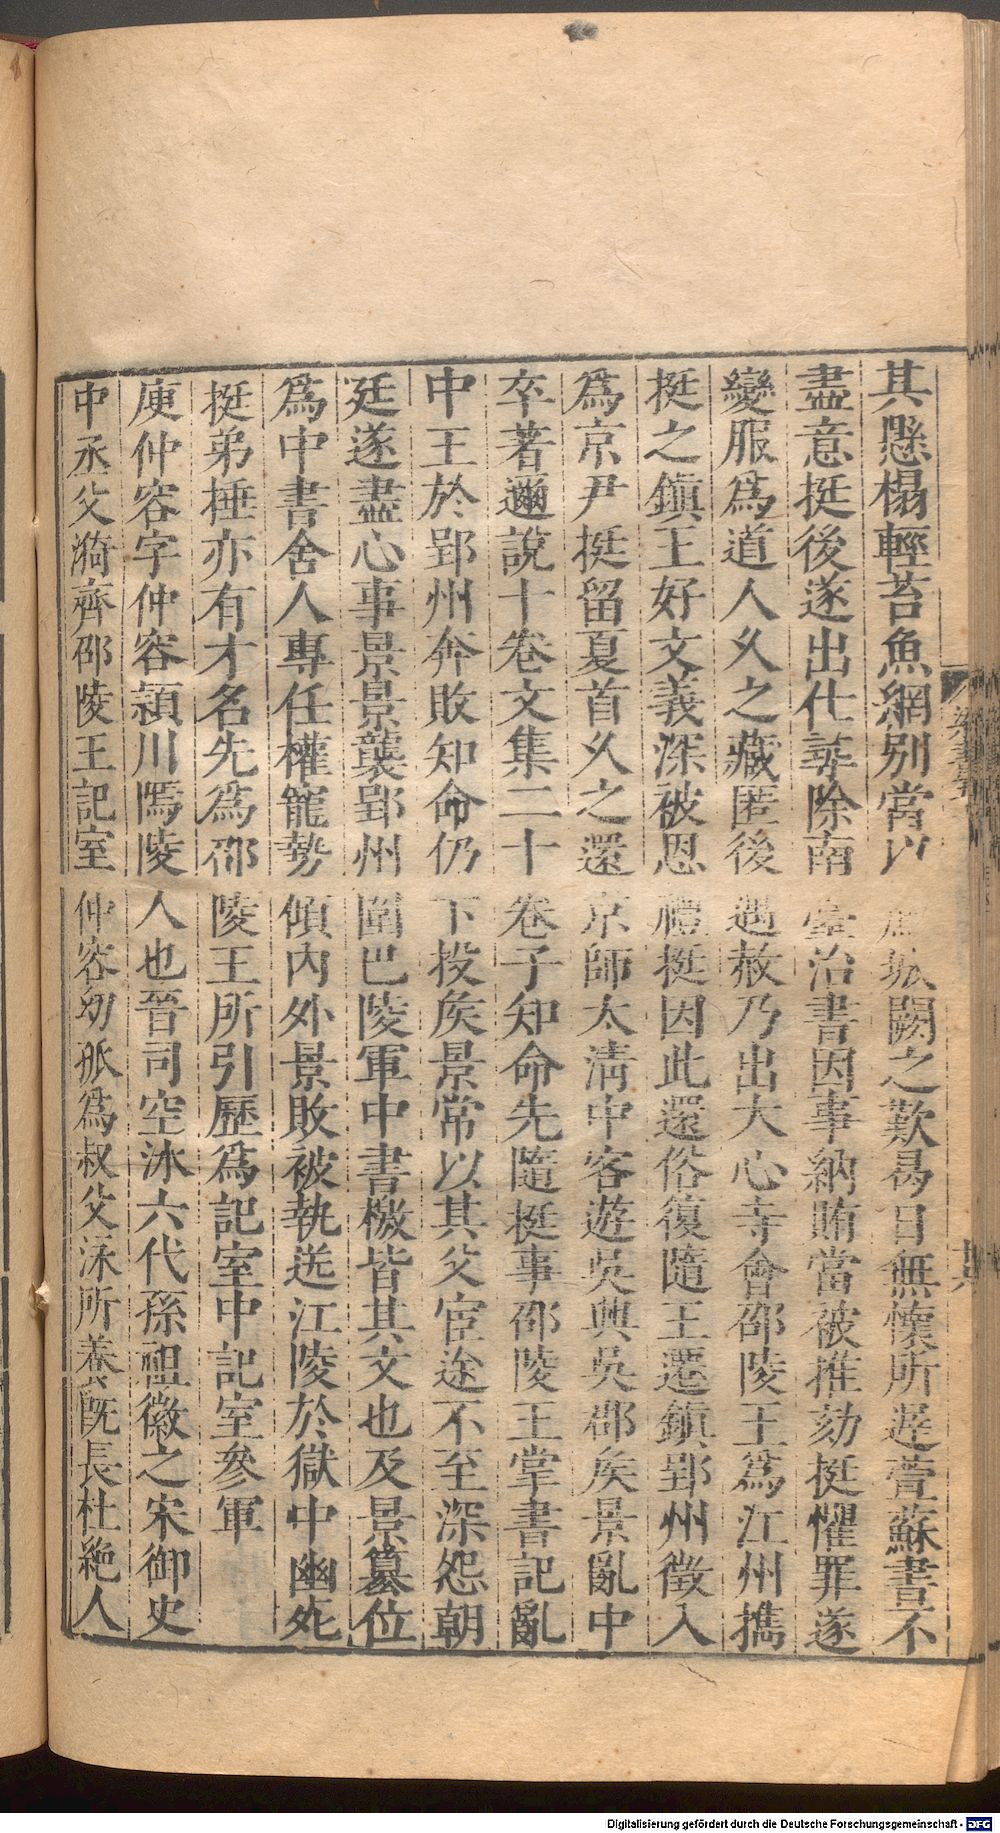 其懸榻輕苔魚網別當以城闕之歎曷日無懷所遲萱蘇書不
盡意挺後遂出仕尋除南臺治書因事納賄當被推劾挺懼罪遂
變服爲道人乆之藏匿後遇赦乃出大心寺會邵陵王爲江州攜
挺之鎭王好文義深被恩禮挺因此還俗復隨王遷鎭郢州徵入
爲京尹挺留夏首乆之還京師太淸中客遊吳興吳郡矦景亂中
卒著邇說十卷文集二十卷子知命先隨挺事邵陵王掌書記亂
中王於郢州奔敗知命仍下投矦景常以其父宦途不至深怨朝
廷遂盡心事景景襲郢州圍巴陵軍中書檄皆其文也及景簒位
爲中書舍人專任權寵勢傾內外景敗被執送江陵於獄中幽死
挺弟捶亦有才名先爲邵陵王所引歷爲記室中記室參軍
庾仲容字仲容潁川鄢陵人也晉司空冰六代孫祖徽之宋御史
中丞父漪齊邵陵王記室仲容幼孤爲叔父泳所養旣長杜絶人
Digitalisierung gefördert durch die Deutsche Forschungsgemeinschaft - DFG